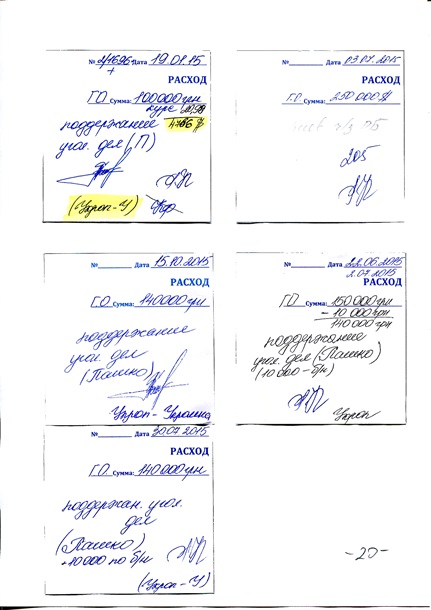 № 21696 Дата 19.01.15
+
РАСХОД
Г.О Сумма: 100000грн
курс 20,98
поддержание 4766 $
угол. дел (П)
(Укроп-У)
Дата 03.07.2015
РАСХОД
Г.Р. Сумма: 250 000 $
205
№ Дата 15.10.2015
РАСХОД
Г.О. Сумма: 140000грн
поддержание
угол. дел
(Пашко)
Укроп-Украина
№ Дата 22.06.2015
2.07.2015
РАСХОД
ГО Сумма: 150 000грн
- 10 000грн
140 000грн
поддержание
угол. дел (Пашко)
(10 000 - б/н)
Укроп
№ Дата 30.07.2015
РАСХОД
Г.О. Сумма: 140000грн
поддержан. угол.
дел
(Пашко)
+10000 по б/н
(Укроп-У)
-20-